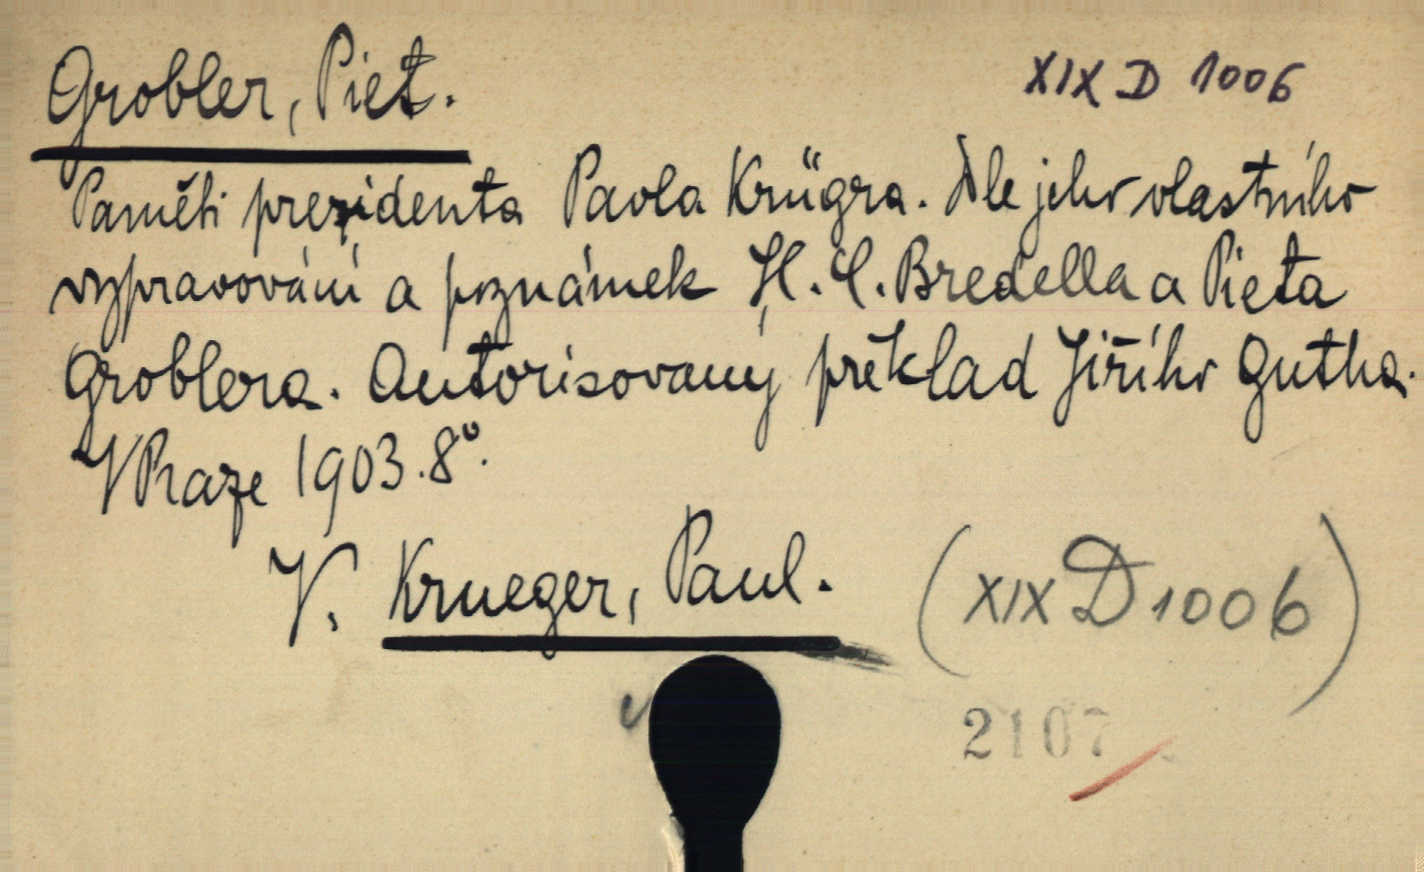 Grobler, Piet.
XIX D 1006
Paměti prezidenta Pavla Krügra. Dle jeho vlastního
vypravování a poznámek H. C. Bredella a Pieta
Groblera. Autorisovaný překlad Jiřího Gutha.
V Praze 1903. 8°.
V. Krueger, Paul.
(XIX D 1006)
2107